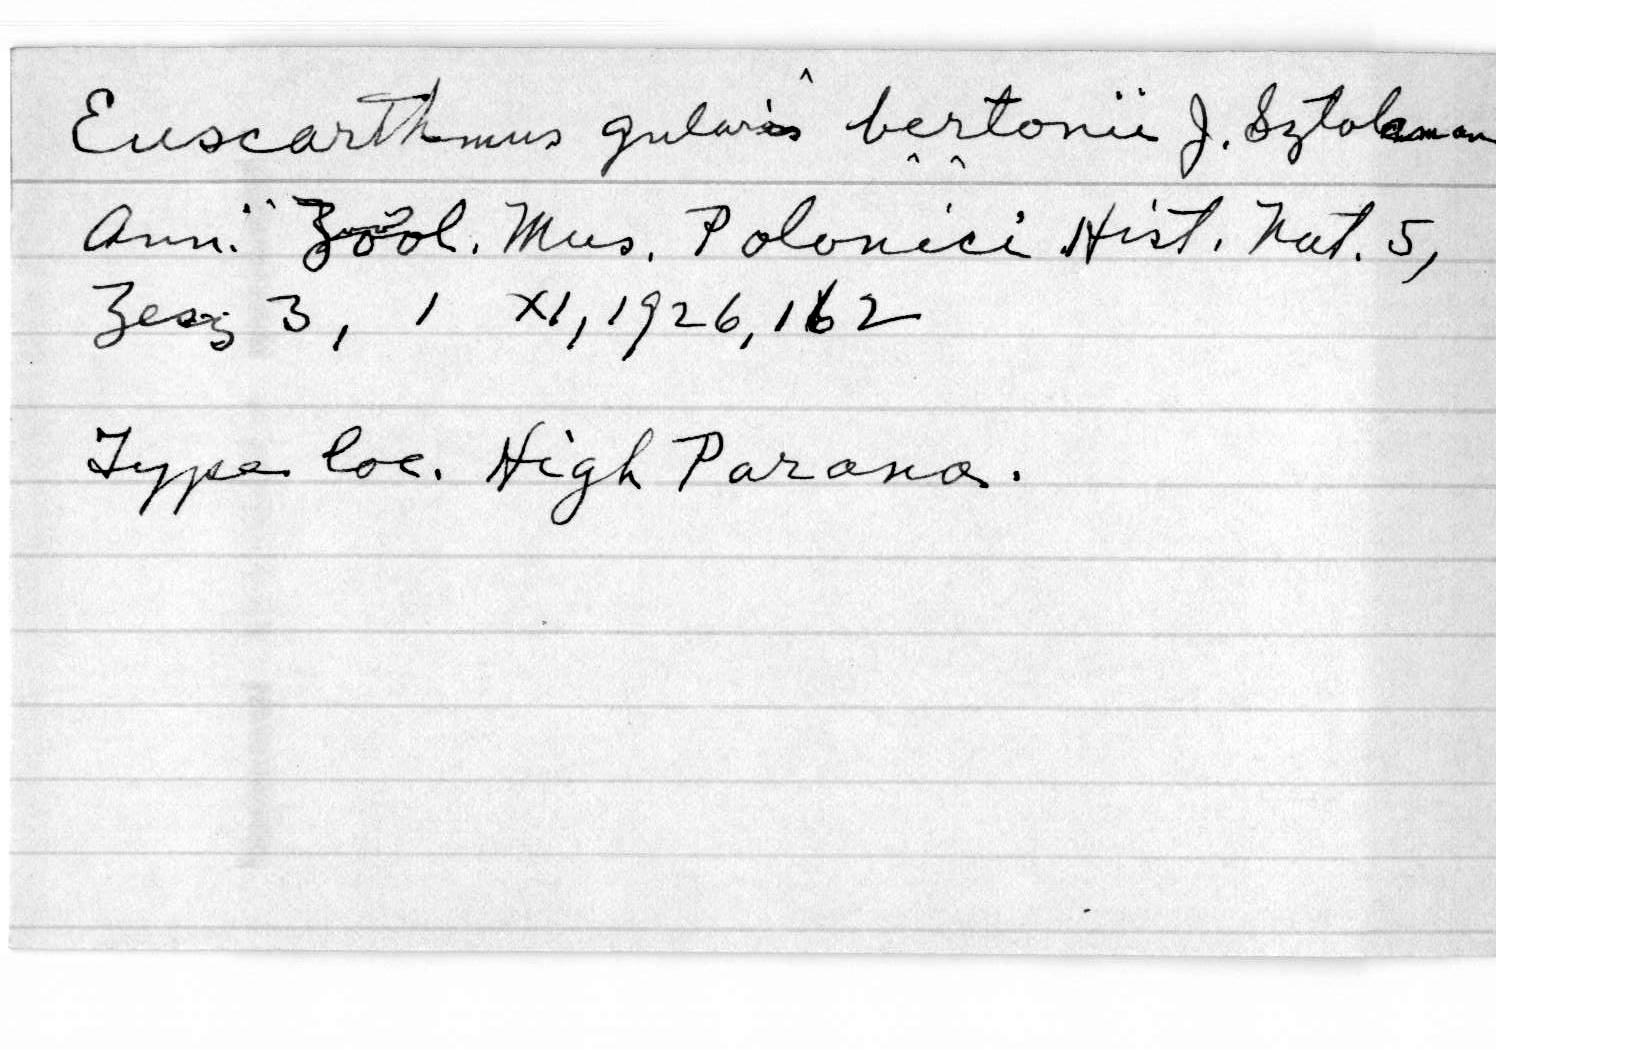 Euscarthmus gularis bertonii J. Sztolcman
Ann. Zool. Mus. Polonici Hist. Nat. 5,
Zesz 3, 1 XI, 1926, 162
Type loc. High Parana.